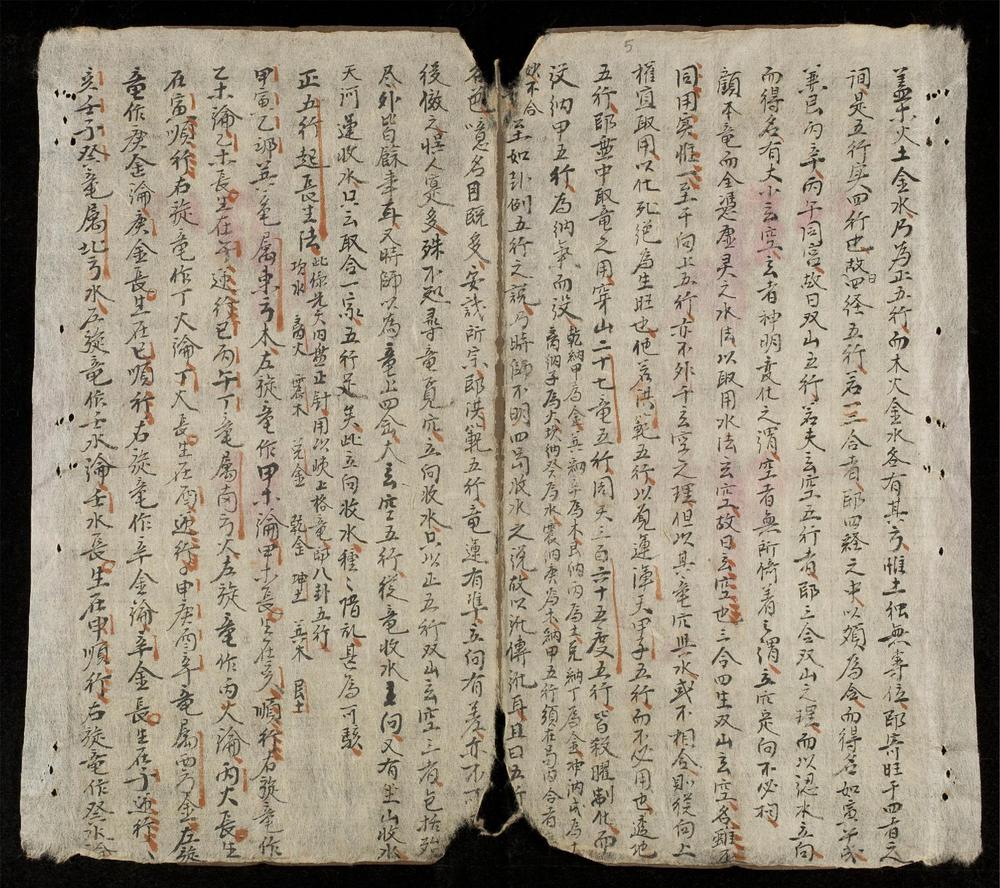 5
盖木火土金水乃為正五行而木火金水各有其方惟土独無專位即寄旺于四者之
間是五行实四行也故曰四经五行若三合者即四经之中以類為合而得名如寅午戌
巽巳丙辛丙午同宫故曰双山五行若夫玄空五行者即三合双山之理而以認水立向
而得名有大小玄空玄者神明变化之謂空者無所倚着之謂立穴定向不必拘
顧本竜而全憑虚灵之水法以取用水法玄空故曰玄空也三合四生双山玄空各雖不
同用实惟一至于向上五行亦不外于玄空之理但以其竜穴與水或不相合則従向上
權宜取用以化死绝為生旺也他若洪範五行以龙運渾天甲子五行而不必用也透地
五行即無中取竜之用穿山二十七竜五行周天三百六十五度五行皆殺曜制化而
設納甲五行為納氣而设 乾納甲為金巽納辛為木艮納丙為土兑納丁為金坤納戌為土
离納子為火坎納癸為水震納庚為木納甲五行須在局内合者
妙不合
至如卦例五行之說乃時師不明四局收水之说故以訛傳訛耳且曰五行
名色噫名目既多安識所宗即洪範五行竜運有準立向有差亦不可
後傚之悞人寔多殊不知尋竜覓穴立向收水只以正五行双山玄空三者包括殆
尽外皆餘事耳又時師以為竜上四合大玄空五行從竜收水立向又有坐山收水
天河運收水口云取合一家五行是失此立向收水種々錯乱甚為可駭
正五行起長生法 此係先天用盤正针用以收上格竜即八卦五行
坎水 离火 震木 兑金 乾金 坤土 巽木 艮土
甲寅乙卯巽竜属東方木左旋竜作甲木論甲木長生在亥順行右旋竜作
乙木論乙木長生在午逆行巳丙午丁竜属南方火左旋竜作丙火論丙火長生
在寅順行右旋竜作丁火論丁火長生在酉逆行申庚酉辛竜属西方金左旋
竜作庚金論庚金長生在巳順行右旋竜作辛金論辛金長生在子逆行
亥壬子癸竜属北方水左旋竜作壬水論壬水長生在申順行右旋竜作癸水論